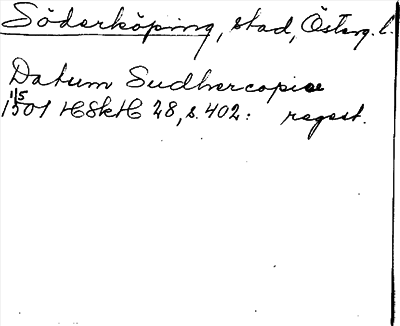 Söderköping, stad, Österg. l.
Datum Sudhercopie
1/5
1501 HSkH 28, s. 402: regest.